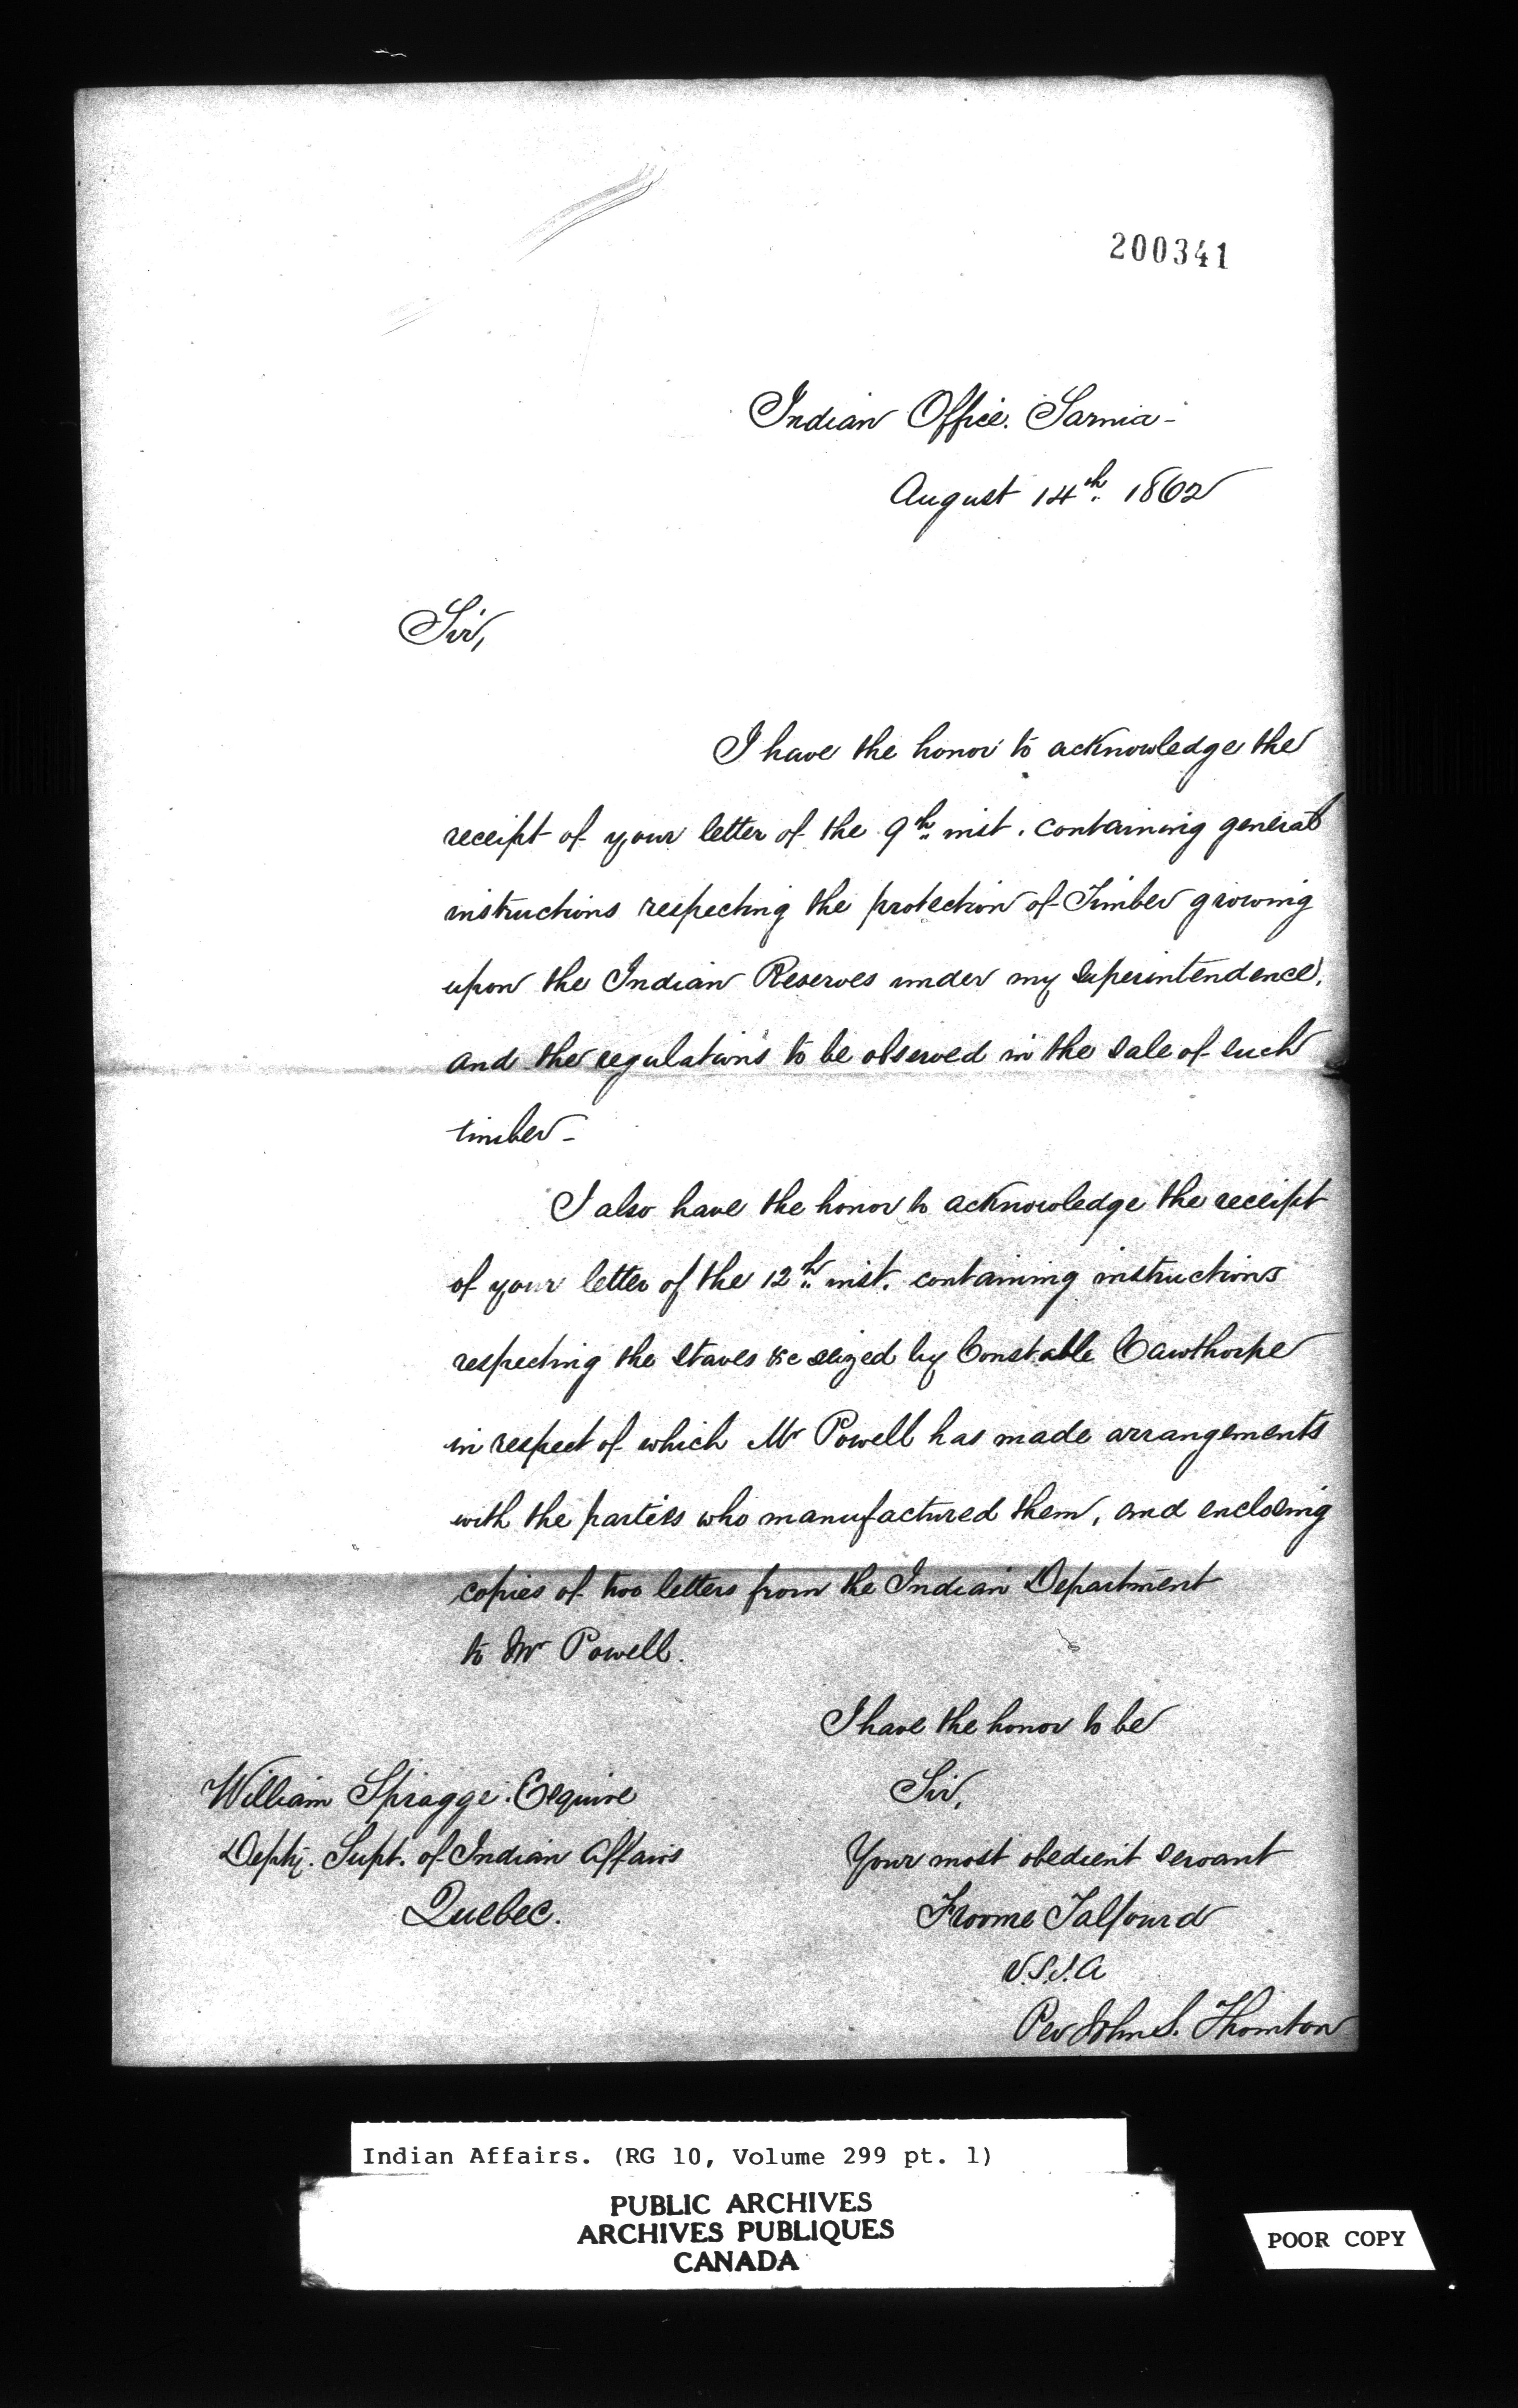 200341
Indian Office. Sarnia -
August 14th. 1862
Sir,
I have the honor to acknowledge the
receipt of your letter of the 9th inst. containing general
instructions respecting the protection of Timber growing
upon the Indian Reserves under my superintendence,
and the regulations to be observed in the sale of such
timber -
I also have the honor to acknowledge the receipt
of your letter of the 12th inst. containing instructions
respecting the staves &c seized by Constable Cawthorpe
in respect of which Mr Powell has made arrangements
with the parties who manufactured them, and enclosing
copies of two letters from the Indian Department
to Mr Powell.
I have the honor to be
Sir,
Your most obedient servant
Froome Talfourd
V.S.I.A
Per John S. Thornton
William Spragge. Esquire
Depty. Supt. of Indian Affairs
Quebec.
Indian Affairs. (RG 10, Volume 299 pt. 1)
PUBLIC ARCHIVES
ARCHIVES PUBLIQUES
CANADA
POOR COPY